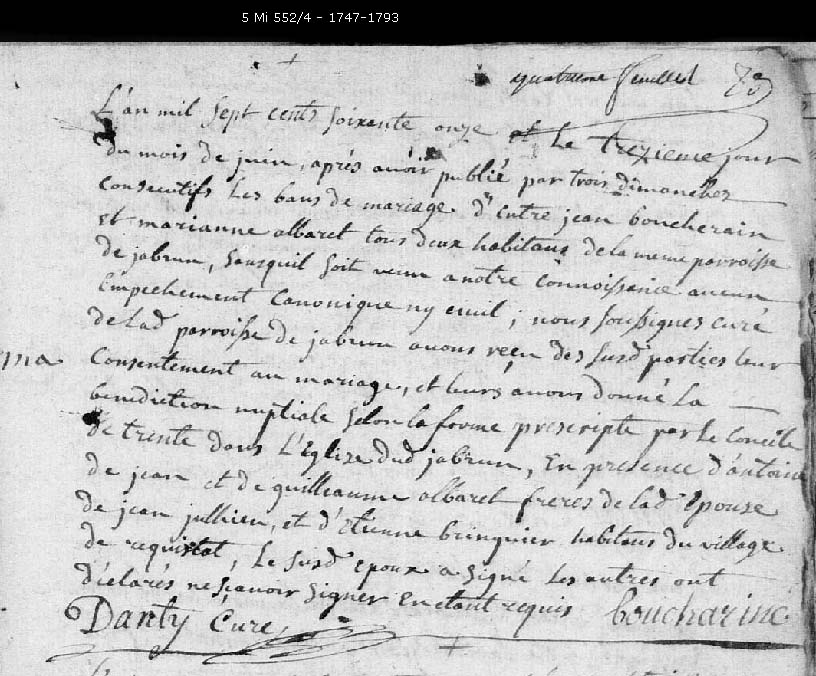 5 Mi 552/4 – 1747-1793
quatrieme feuillet
L'an mil sept cents soixante onze et le trezieme jour
du mois de juin, aprés avoir publié par trois dimanches
consecutifs les bans de mariage d'entre jean boucherain
et marianne albaret tous deux habitans de la meme parroisse
de jabrun, sans quil soit venu a notre connoissance aucun
Empechement Canonique ny civil; nous soussignes curé
de lad parroisse de jabrun avons reçu des susd parties leur
ma
Consentement au mariage, et leurs avons donné la
benediction nuptiale selon la forme prescripte par le Concile
de trente dans L'Eglize dud jabrun, En presence d'antoine
de jean et de guilleaume albaret freres de lad Epouse
de jean jullien, et d'Etienne bringuier habitans du village
de requistat, le susd Epoux a signé les autres ont
déclarés ne sçavoir signer En etant requis boucharinc
Danty Curé